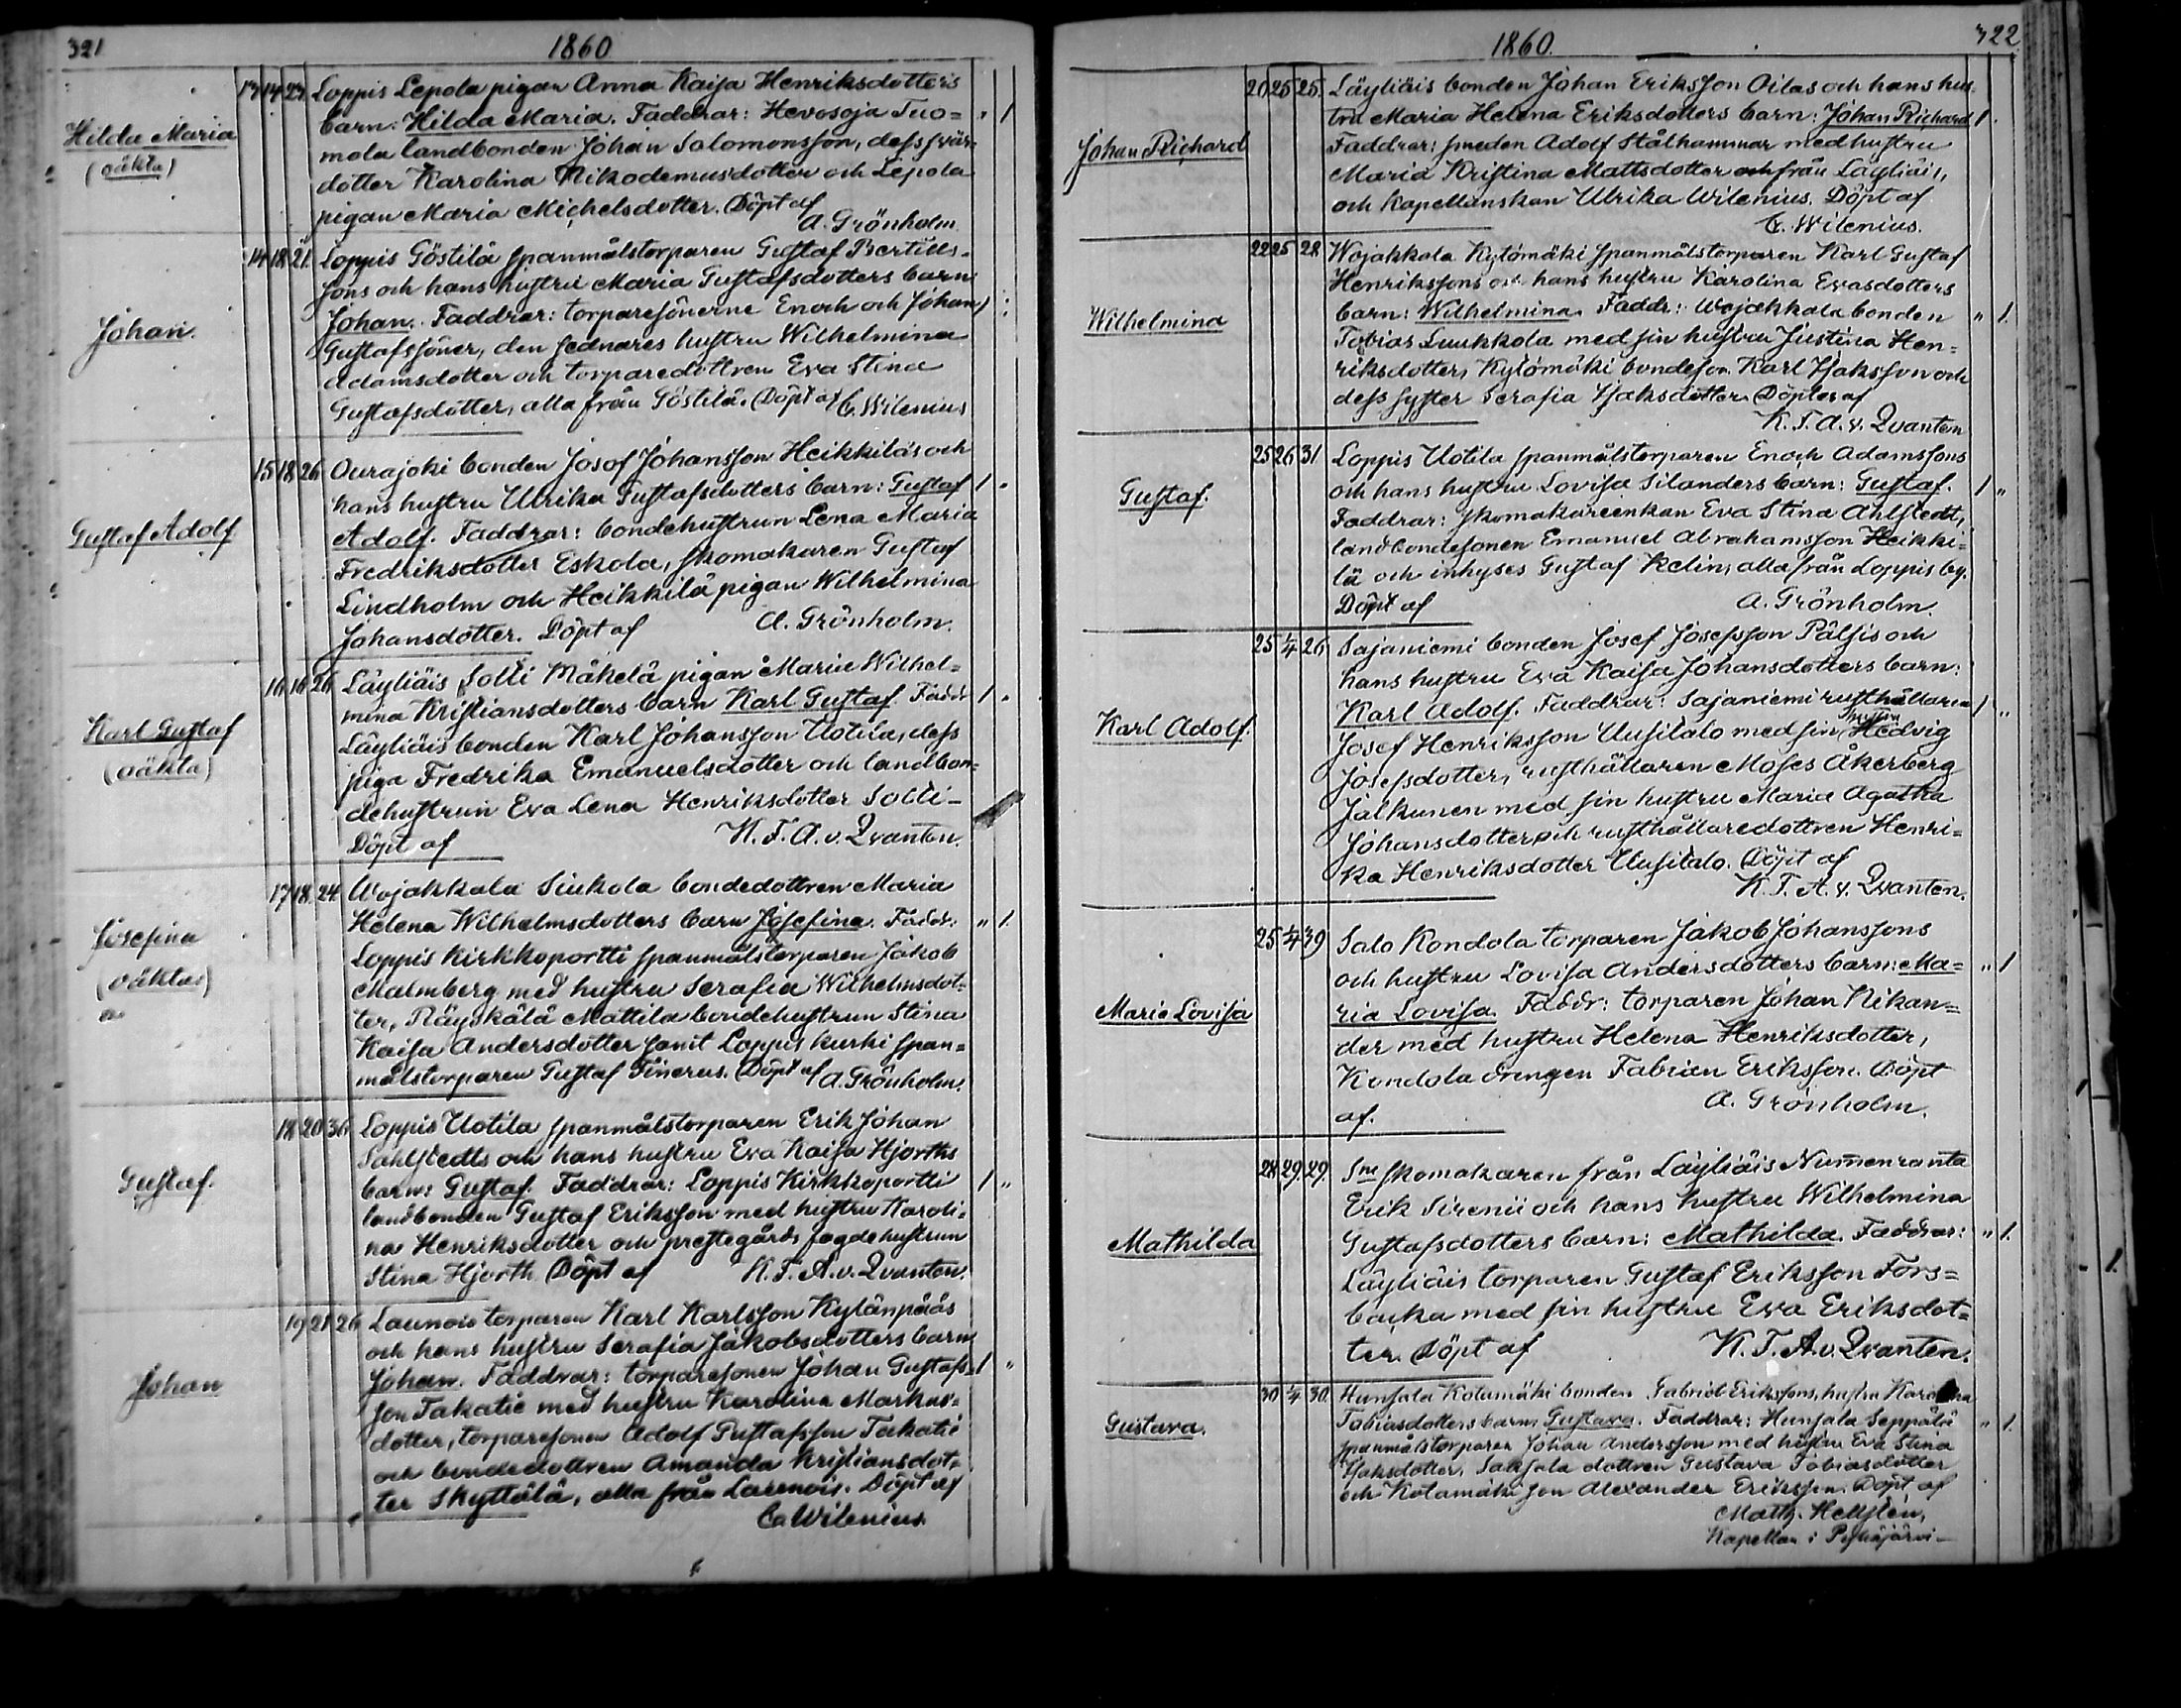 321
1860
Hilda Maria
(oäkta)
13 14 27 Loppis Lepola pigan Anna Kaisa Henriksdotters
barn: Hilda Maria. Faddrar: Hevosoja Tuo= " 1
mola landbonden Johan Salomonsson, dess svär-
dotter Karolina Nikodemusdotter och Lepola
pigan Maria Michelsdotter. Döpt af
A. Grönholm
Johan.
14 18 21. Loppis Göstilä spanmålstorparen Gustaf Bertills-
sons och hans hustru Maria Gustafsdotters barn
Johan. Faddrar: torparesönerne Enoch och Johan
Gustafssöner, den sednares hustru Wilhelmina
Adamsdotter och torparedottren Eva Stina
Gustafsdotter, alla från Göstilä. Döpt af C. Wilenius
Gustaf Adolf
15 18 26 Ourajoki bonden Josef Johansson Heikkiläs och
hans hustru Ulrika Gustafsdotters barn: Gustaf 1 "
Adolf. Faddrar: bondehustrun Lena Maria
Fredriksdotter Eskola, skomakaren Gustaf
Lindholm och Heikkilä pigan Wilhelmina
Johansdotter. Döpt af A. Grönholm.
Karl Gustaf
(oäkta)
16 16 26 Läyliäis Solli Mäkelä pigan Maria Wilhel=
mina Kristiansdotters barn Karl Gustaf. Faddr 1 "
Läyliäis bonden Karl Johansson Uotila, dess
piga Fredrika Emanuelsdotter och landbon=
dehustrun Eva Lena Henriksdotter Solli-
Döpt af K. F. A. v. Qvanten.
Josefina
(oäkta)
17 18 24 Wojakkala Siukola bondedottren Maria
Helena Wilhelmsdotters barn Josefina. Faddr: " 1.
Loppis Kirkkoportti spanmålstorparen Jakob
Malmberg med hustru Serafia Wilhelmsdot=
ter, Räyskälä Mattila bondehustrun Stina
Kaisa Andersdotter samt Loppis Kurki span=
målstorparen Gustaf Finerus. Döpt af A. Grönholm.
Gustaf.
18 20 36 Loppis Uotila spanmålstorparen Erik Johan
Sahlstedts och hans hustru Eva Kaisa Hjorths
barn: Gustaf. Faddrar: Loppis Kirkkoportti 1 "
landbonden Gustaf Eriksson med hustru Karoli=
na Henriksdotter och prestegårds fogdehustrun
Stina Hjorth. Döpt af K. F. A. v. Qvanten.
Johan
19 21 26 Launois torparen Karl Karlsson Kylänpääs
och hans hustru Serafia Jakobsdotters barn
Johan. Faddrar: torparesonen Johan Gustafs= 1 "
son Takatie med hustru Karolina Markus=
dotter, torparesonen Adolf Gustafsson Takatie
och bondedottren Amanda Kristiansdot=
ter Skyttälä, alla från Launois. Döpt af
C. Wilenius.
1860.
322
Johan Richard
20 25 25. Läyliäis bonden Johan Eriksson Oilas och hans hus
tru Maria Helena Eriksdotters barn: Johan Richard 1.
Faddrar: smeden Adolf Stålhammar med hustru
Maria Kristina Mattsdotter från Läyliäis,
och Kapellanskan Ulrika Wilenius. Döpt af
C. Wilenius.
Wilhelmina
22 25 28 Wojakkala Kylämäki spanmålstorparen Karl Gustaf
Henrikssons och hans hustru Karolina Evasdotters
barn: Wilhelmina. Faddr: Wojakkala bonden " 1.
Tobias Luukkola med sin hustru Justina Hen=
riksdotter, Kylämäki bondeson Karl Isaksson och
dess syster Serafia Isaksdotter. Döptes af
K. F. A. v. Qvanten
Gustaf.
25 26 31 Loppis Uotila spanmålstorparen Enoch Adamssons
och hans hustru Lovisa Silanders barn: Gustaf. 1 "
Faddrar: skomakareenkan Eva Stina Ahlstedt,
landbondesonen Emanuel Abrahamsson Heikki=
lä och inhyses Gustaf Relin, alla från Loppis by.
Döpt af A. Grönholm.
Karl Adolf.
25 1/4 26 Sajaniemi bonden Josef Josefsson Pälsis och
hans hustru Eva Kaisa Johansdotters barn:
Karl Adolf. Faddrar: Sajaniemi rusthållaren 1 "
Josef Henriksson Uusitalo med sin hustru Hedvig
Josefsdotter, rusthållaren Moses Åkerberg
Jalkunen med sin hustru Maria Agatha
Johansdotter och rusthållaredottren Henri=
ka Henriksdotter Uusitalo. Döpt af
K. F. A. v. Qvanten.
Maria Lovisa
25 1/4 39 Salo Kondola torparen Jakob Johanssons
och hustru Lovisa Andersdotters barn: Ma= " 1
ria Lovisa. Faddr: torparen Johan Nikan=
der med hustru Helena Henriksdotter,
Kondola drengen Fabian Eriksson. Döpt
af. A. Grönholm.
Mathilda
28 29. 29. Sne skomakaren från Läyliäis Nummenranta
Erik Sirenii och hans hustru Wilhelmina
Gustafsdotters barn: Mathilda. Faddrar: " 1.
Läyliäis torparen Gustaf Eriksson Fors=
backa med sin hustru Eva Eriksdot=
ter. Döpt af K. F. A. v. Qvanten.
Gustava.
30 1/4 30. Hunsala Kotamäki bonden Gabriel Erikssons, hustru
Tobiasdotters barn: Gustava. Faddrar: Hunsala Seppälä " 1.
spanmålstorparen Johan Andersson med hustru Eva Stina
Isaksdotter, Saksala dottren Gustava Tobiasdotter
och Kotamäki son Alexander Eriksson. Döpt af
Math. Hellstén,
Kapellan i Pyhäjärvi-